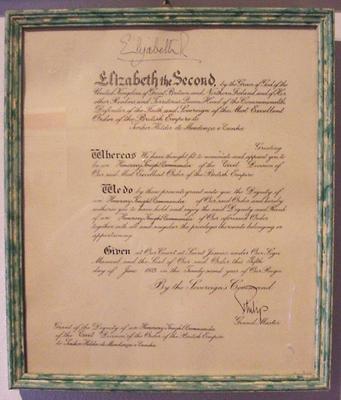 Elizabeth R
Elizabeth the Second, by the Grace of God of the
United Kingdom of Great Britain and Northern Ireland and of Her
other Realms and Territories Queen, Head of the Commonwealth,
Defender of the Faith and Sovereign of the Most Excellent
Order of the British Empire to
Senhor Helder de Mendonça e Cunha
Greeting
Whereas We have thought fit to nominate and appoint you to
be an Honorary Knight Commander of the Civil Division of
Our said Most Excellent Order of the British Empire
We do by these presents grant unto you the Dignity of
an Honorary Knight Commander of Our said Order and hereby
authorise you to have hold and enjoy the said Dignity and Rank
of an Honorary Knight Commander of Our aforesaid Order
together with all and singular the privileges thereunto belonging or
appertaining.
Given at Our Court at Saint James's under Our Sign
Manual and the Seal of Our said Order this Fifth
day of June 1973 in the Twenty-second year of Our Reign
By the Sovereign's Command.
Philip
Grand Master
Grant of the Dignity of an Honorary Knight Commander
of the Civil Division of the Order of the British Empire
to Senhor Helder de Mendonça e Cunha